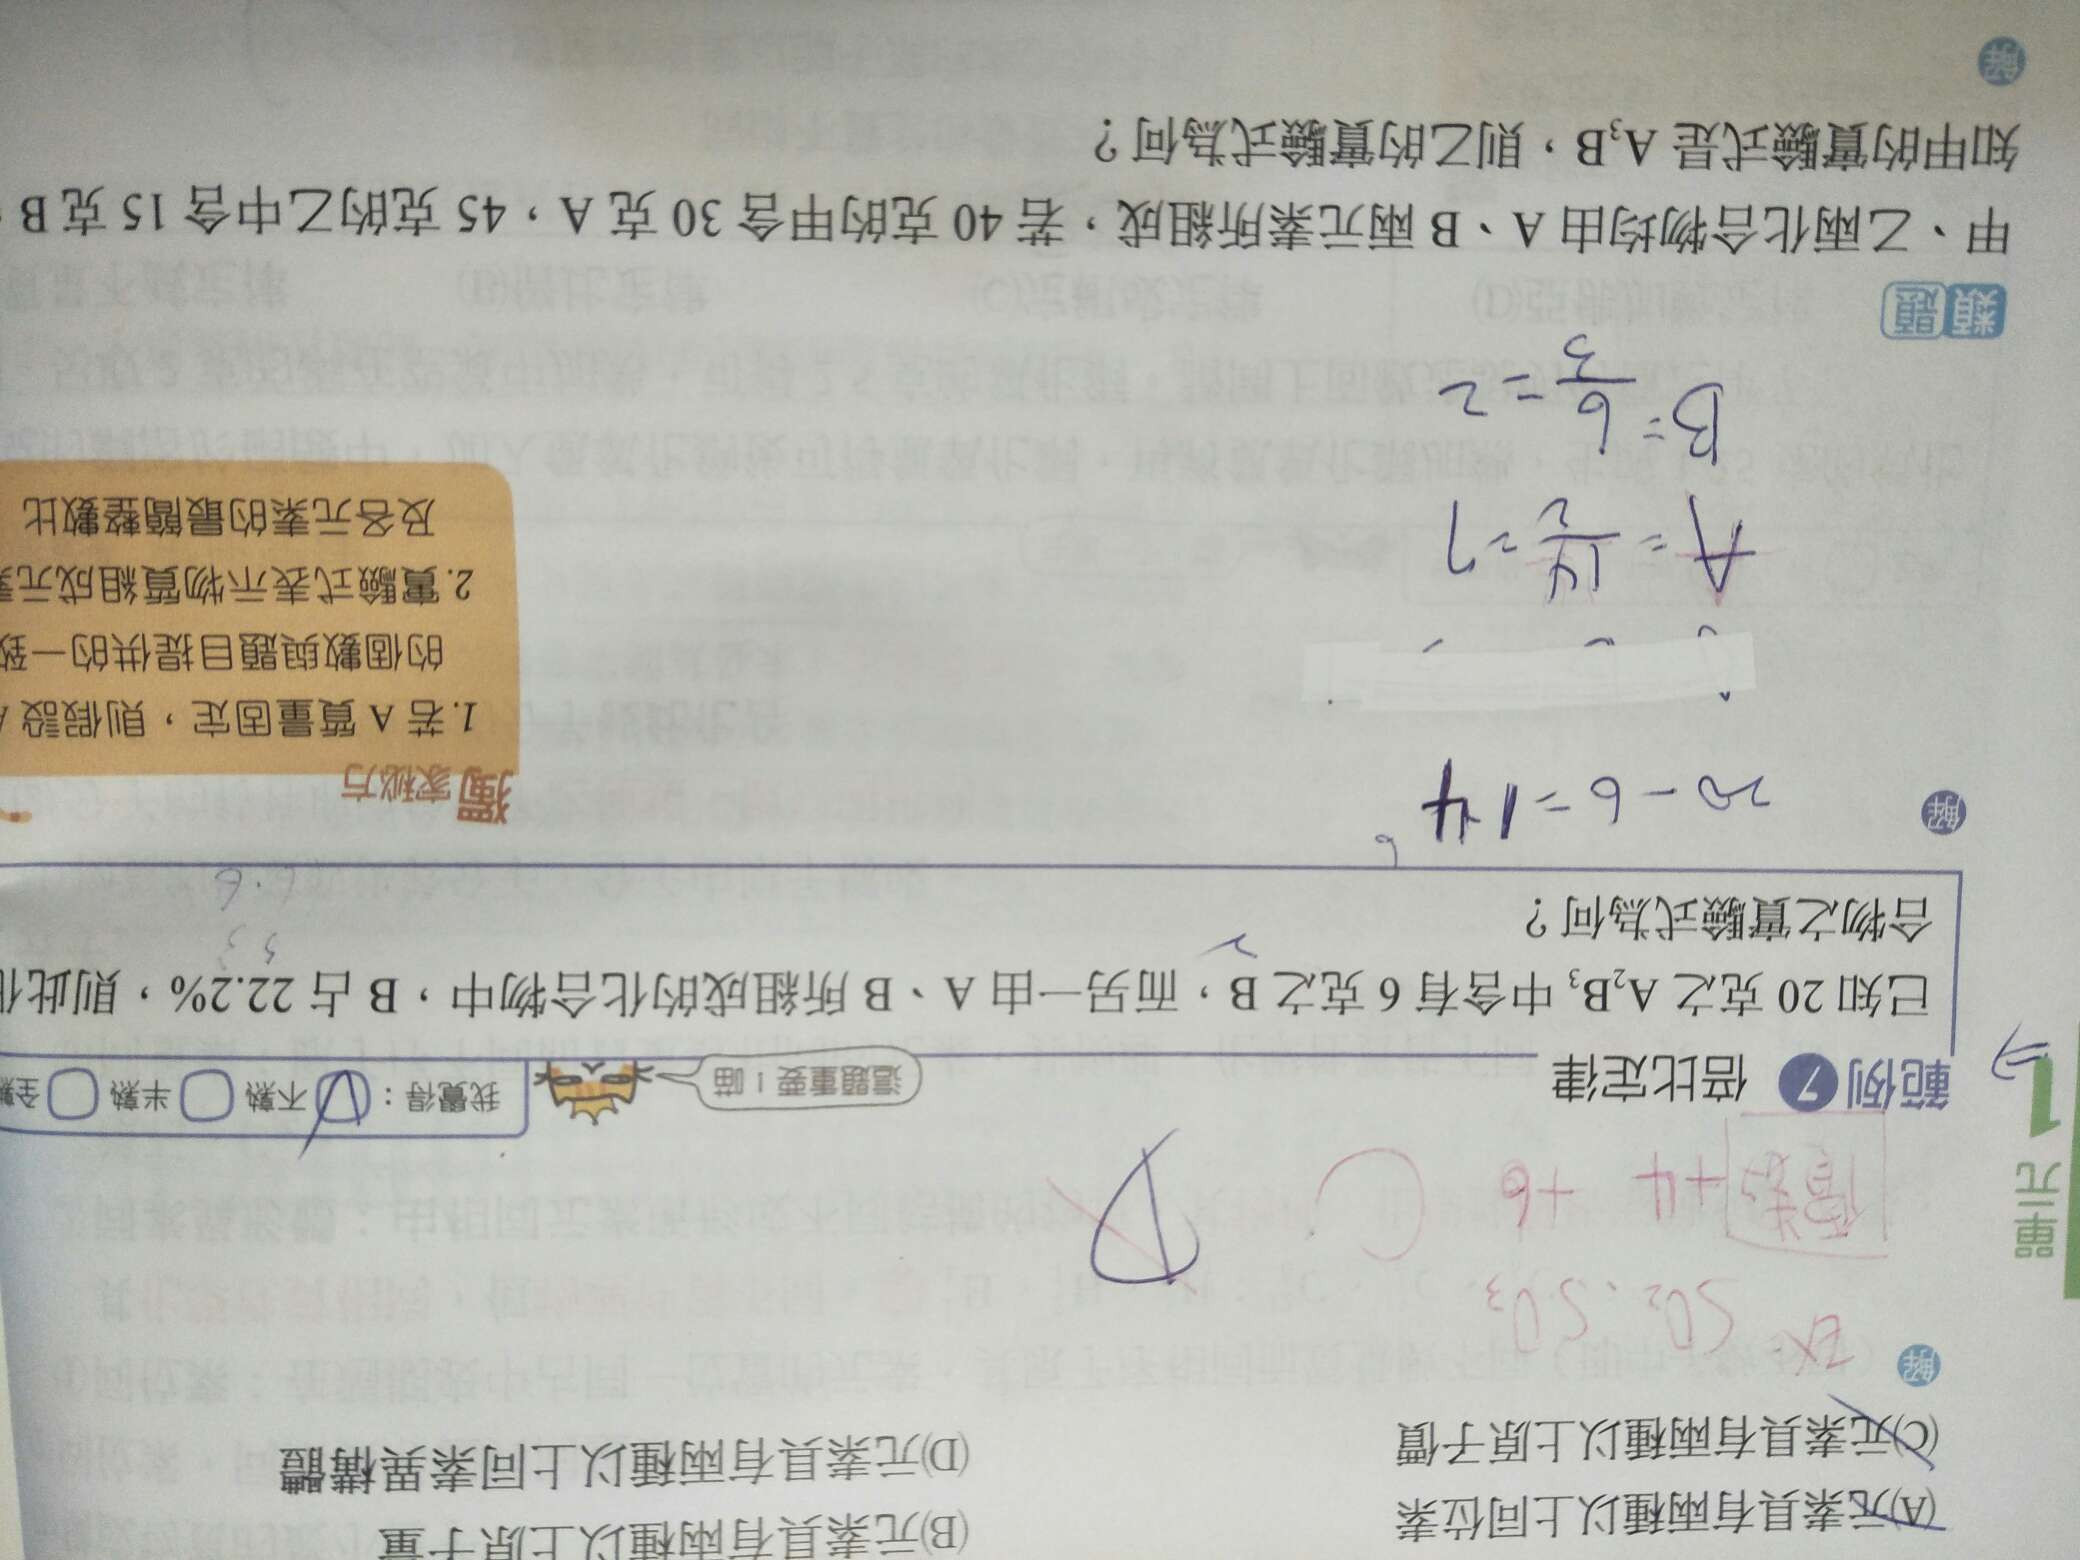 (A)元素具有兩種以上同位素
(B)元素具有兩種以上原子量
(C)元素具有兩種以上原子價
(D)元素具有兩種以上同素異構體
解
EX: SO₂、SO₃
價數 +4 +6
單元
1
範例 7 倍比定律
這題重要！喵
我覺得： 不熟 半熟
已知 20 克之 A₂B₃ 中含有 6 克之 B，而另一由 A、B 所組成的化合物中，B 占 22.2%，則此
合物之實驗式為何？
解
20-6=14
A=14/2=7
B=6/3=2
獨家秘方
1.若 A 質量固定，則假設
的個數與題目提供的一致
2.實驗式表示物質組成元
及各元素的最簡整數比
類題
甲、乙兩化合物均由 A、B 兩元素所組成，若 40 克的甲含 30 克 A，45 克的乙中含 15 克 B
知甲的實驗式是 A₃B，則乙的實驗式為何？
解